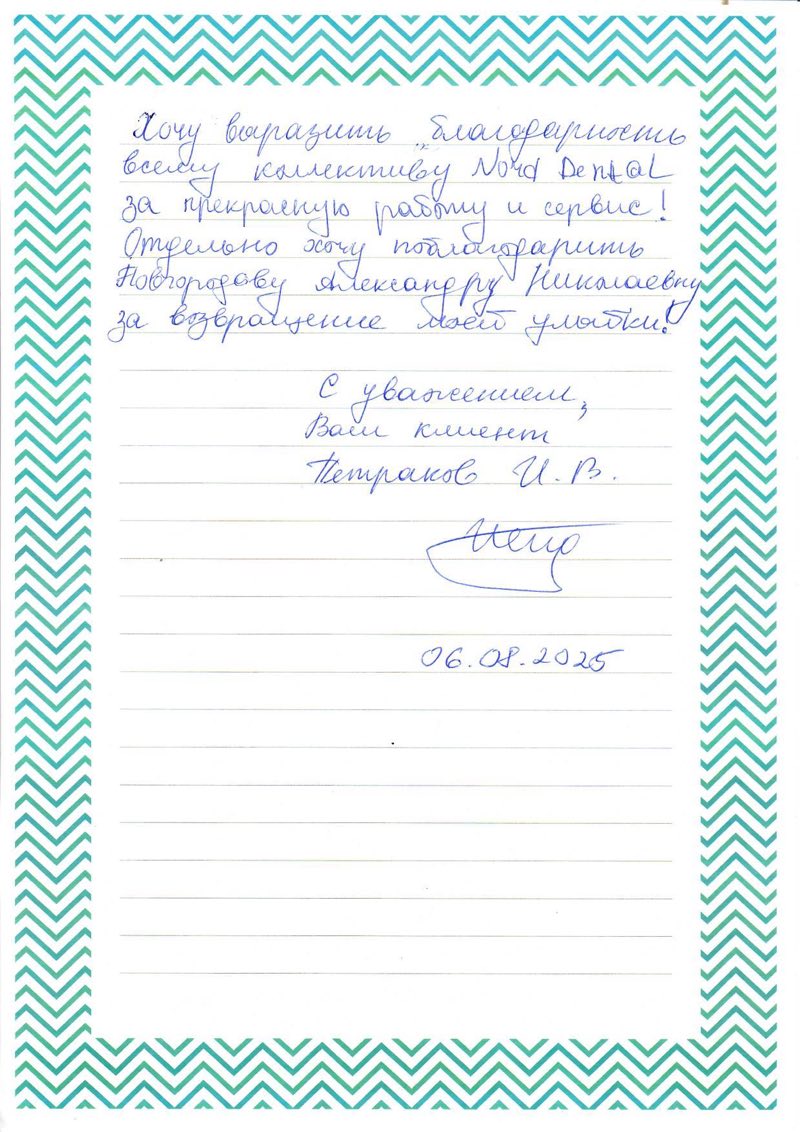 Хочу выразить благодарность
всему коллективу Nord Dental
за прекрасную работу и сервис!
Отдельно хочу поблагодарить
Новгородову Александру Николаевну
за возвращение моей улыбки!
С уважением,
Ваш клиент
Петраков И. В.
06.08.2025